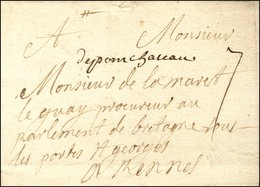 A Monsieur
depontchateau
Monsieur de la maret
le quay procureur au
parlement de bretagne rous
les portes St georges
a Rennes
7